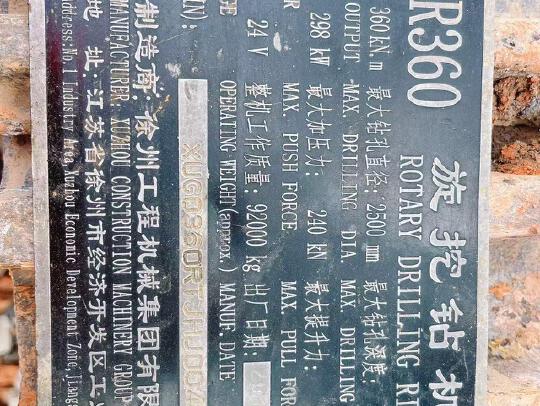 R360
旋挖钻机
ROTARY DRILLING RI
360 KN.m 最大钻孔直径: 2500 mm 最大钻孔深度:
OUTPUT MAX. DRILLING DIA. MAX. DRILLING
298 kW 最大加压力: 240 kN 最大提升力:
MAX. PUSH FORCE MAX. PULL FOR
24 V 整机工作质量: 92000 kg 出厂日期:
OPERATING WEIGHT(approx.) MANUF. DATE
制造商: 徐州工程机械集团有限
MANUFACTURER: XUZHOU CONSTRUCTION MACHINERY GROUP
地 址: 江苏省徐州市经济开发区工
Address:No.1 Industry Area Xuzhou Economic Development Zone,Jiangs